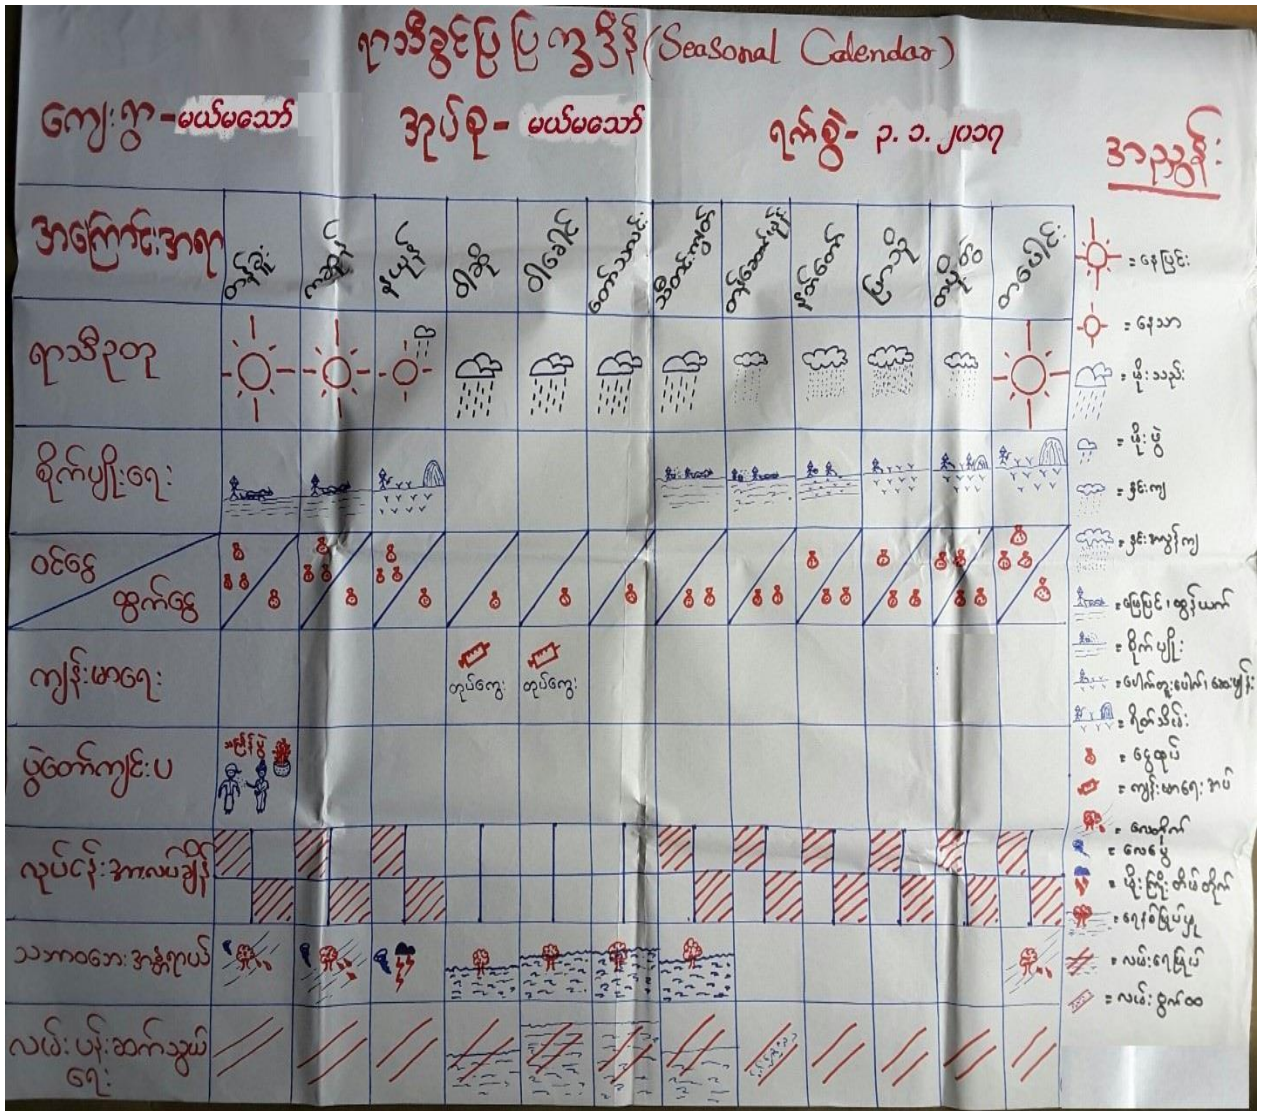 ရာသီခွင်ပြ ပြက္ခဒိန် (Seasonal Calendar)
ကျေးရွာ - မယ်မသော် အုပ်စု - မယ်မသော် ရက်စွဲ - ၃. ၁. ၂၀၁၇
အညွှန်း
အကြောင်းအရာ တန်ခူး ကဆုန် နယုန် ဝါဆို ဝါခေါင် တော်သလင်း သီတင်းကျွတ် တန်ဆောင်မုန်း နတ်တော် ပြာသို တပို့တွဲ တပေါင်း
ရာသီဥတု
စိုက်ပျိုးရေး
ဝင်ငွေ
ထွက်ငွေ
ကျန်းမာရေး တုပ်ကွေး တုပ်ကွေး
ပွဲတော်ကျင်းပ
လုပ်ငန်းအားလပ်ချိန်
သဘာဝဘေးအန္တရာယ်
လမ်းပန်းဆက်သွယ်
ရေး
= နေပြင်း
= နေသာ
= မိုးသည်း
= မိုးဖွဲ
= နှင်းကျ
= မြေပြင်၊ ထွန်ယက်
= စိုက်ပျိုး
= ရိတ်သိမ်း
= ငွေထုပ်
= ကျန်းမာရေး အပ်
= လေတိုက်
= လေပွေ
= မိုးကြိုး တိမ်တိုက်
= ရေနစ်မြုပ်မှု
= လမ်းရေမြုပ်